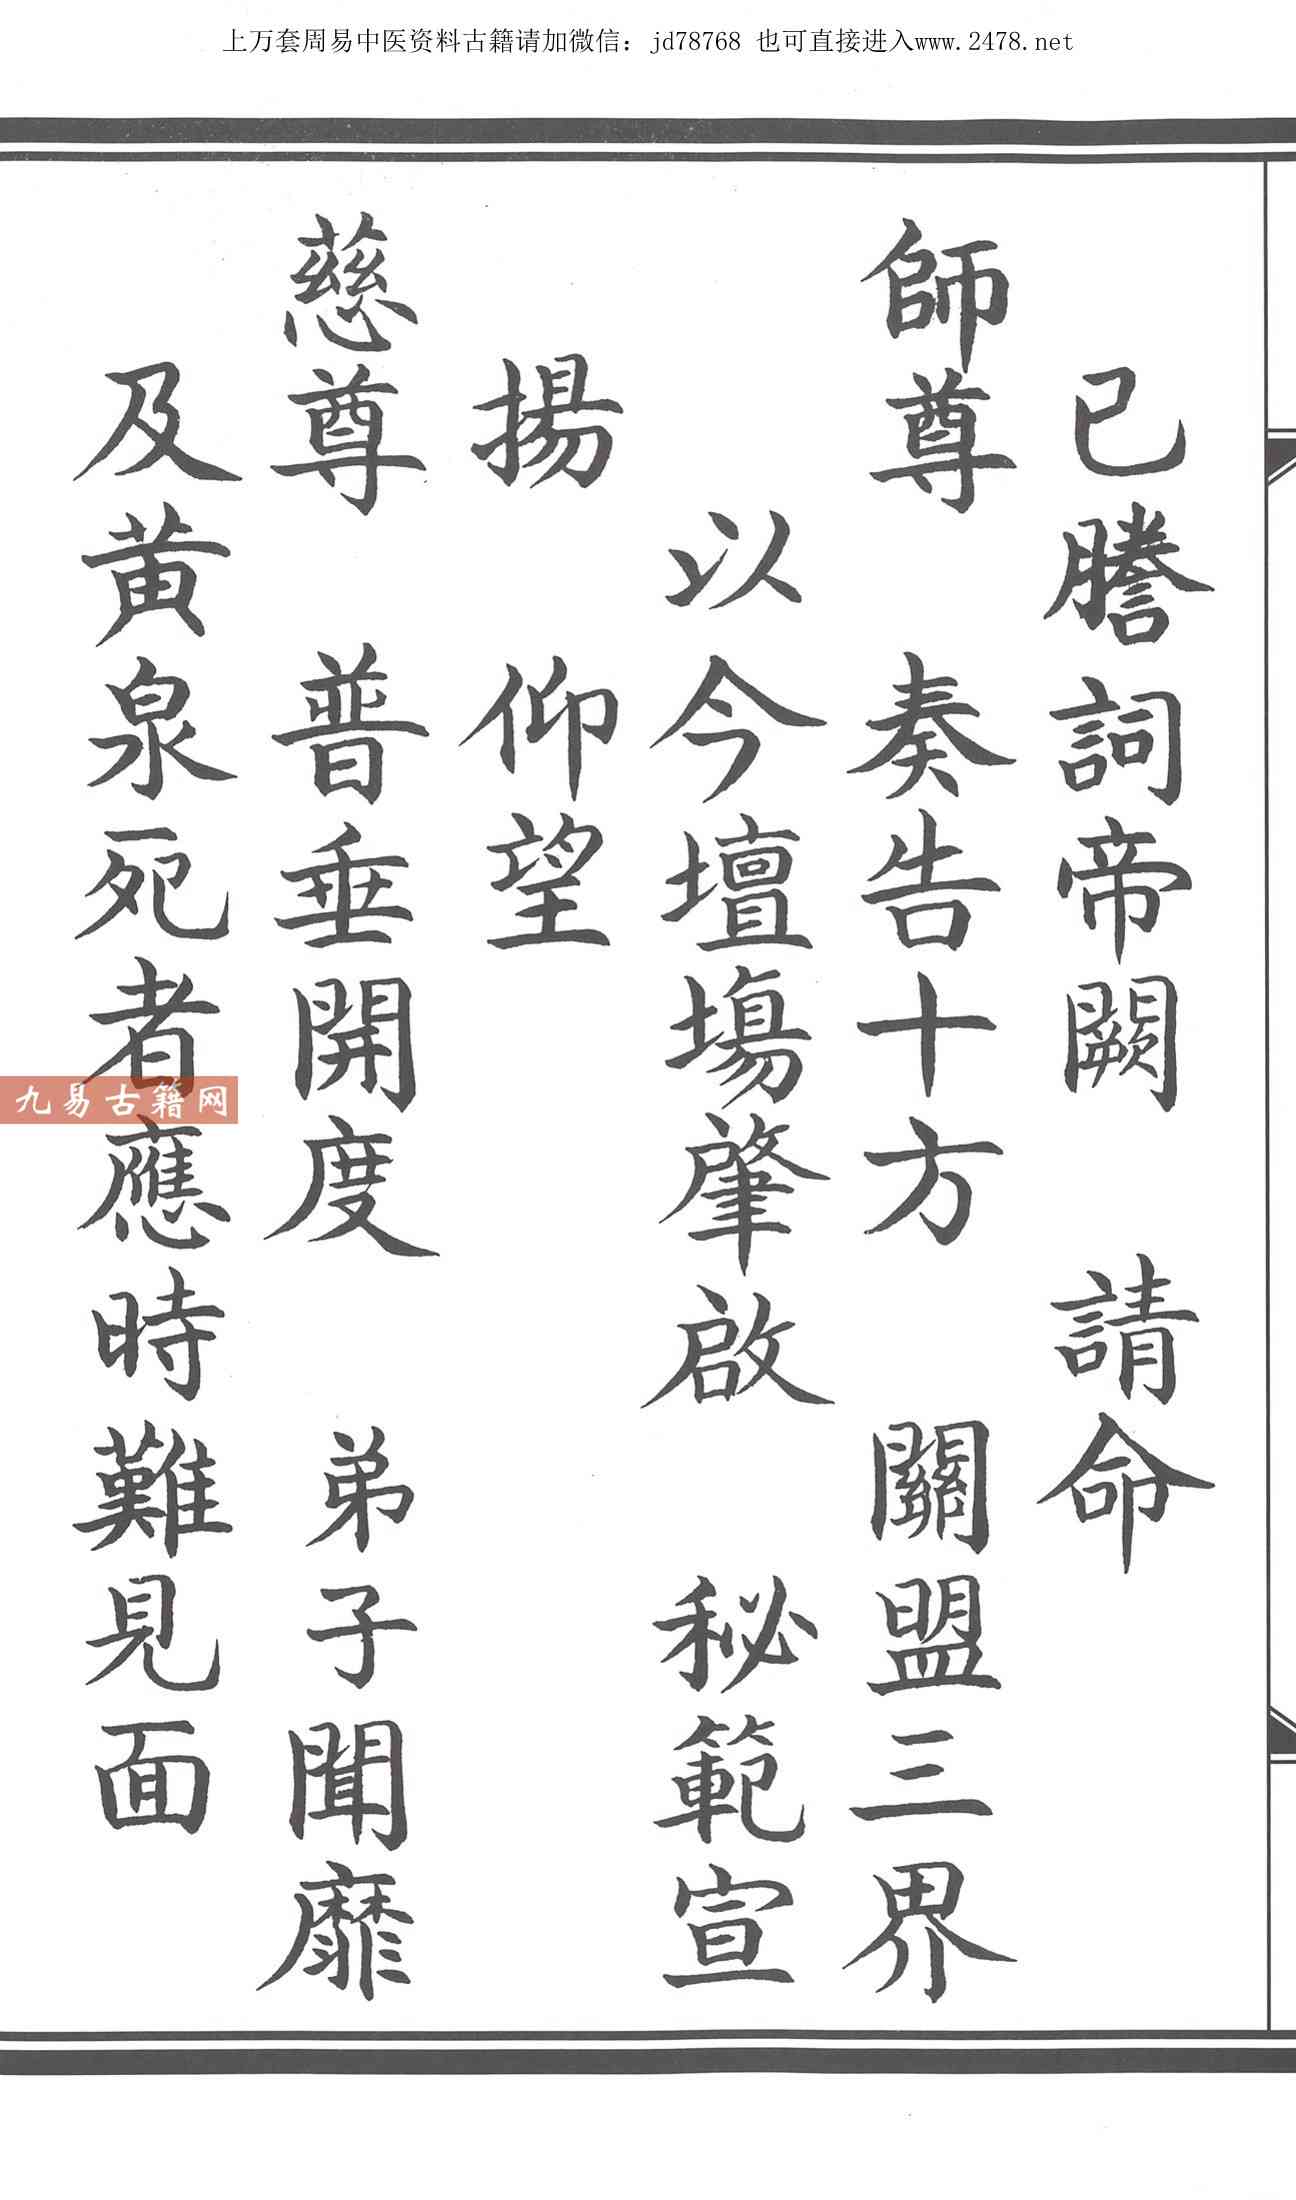 上万套周易中医资料古籍请加微信：jd78768 也可直接进入www.2478.net
已謄詞帝闕　請命
師尊　奏告十方　關盟三界
以今壇場肇啟　秘範宣
揚　仰望
慈尊　普垂開度　弟子聞靡
及黃泉死者應時難見面
九易古籍网